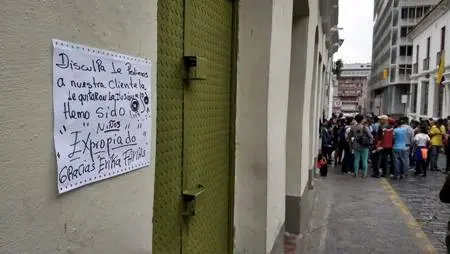 Disculpa Le Pedimos
a nuestra Clientela
Le quitaron La Ilusión a
Hemo Sido
"Niños"
"Expropiado"
Gracias Erika Farías